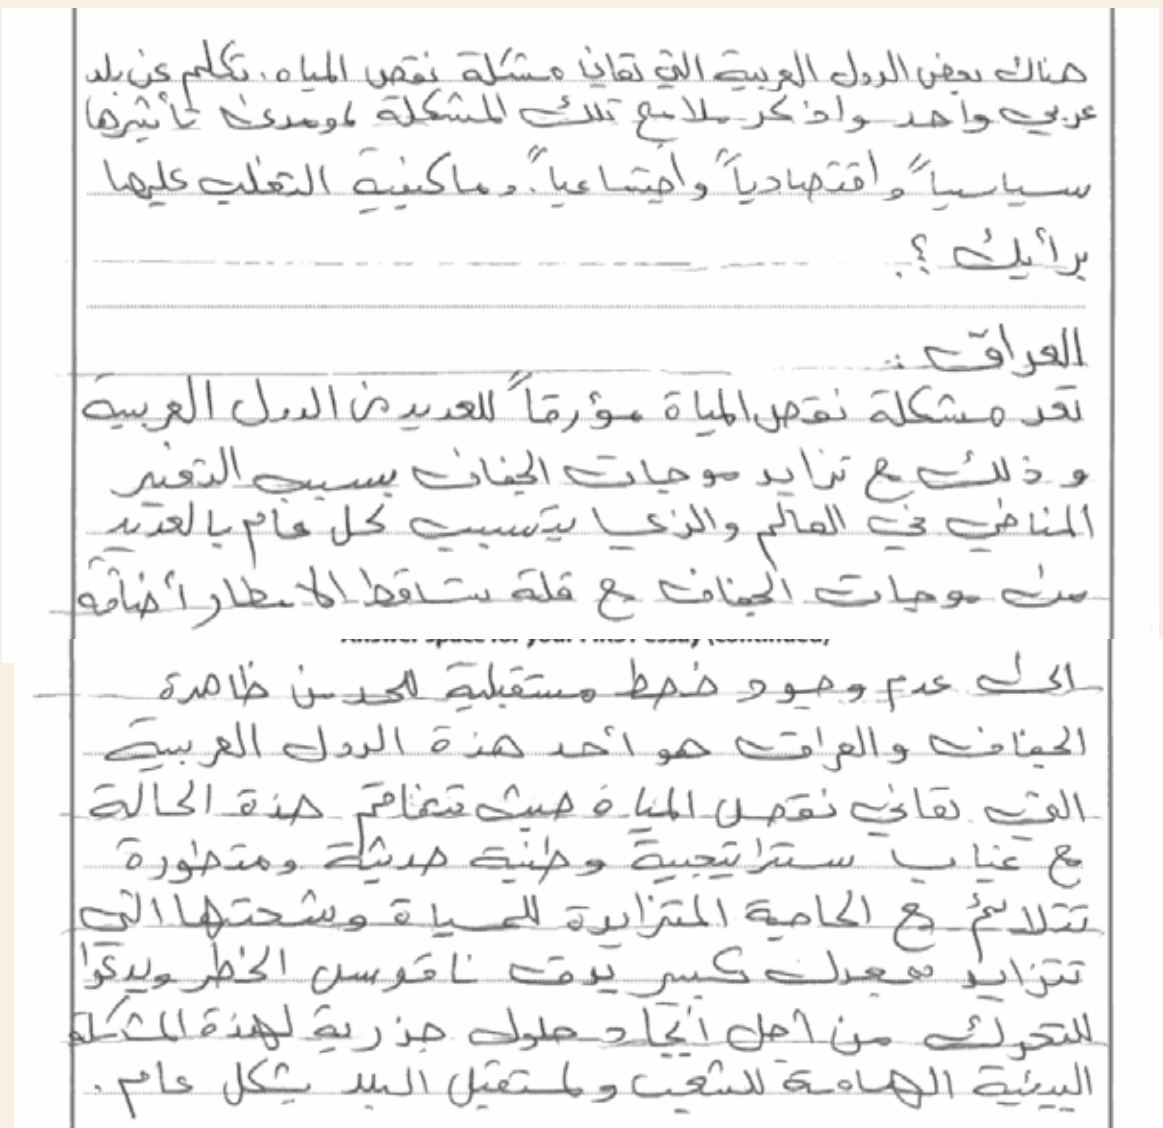 هناك بعض الدول العربية التي تعاني مشكلة نقص المياه. تكلم عن بلد
عربي واحد واذكر ملامح تلك المشكلة ومدى تأثيرها
سياسياً وأقتصادياً وأجتماعياً. وماكيفية التغلب عليها
برأيك ؟.
العراق :
تعد مشكلة نقص المياة مؤرقاً للعديد من الدول العربية
و ذلك مع تزايد موجات الجفاف بسبب التغير
المناخي في العالم والذي يتسبب كل عام بالعديد
من موجات الجفاف مع قلة تساقط الامطار أضافة
Answer space for your FIRST essay (continued)
الى عدم وجود خطط مستقبلية للحد من ظاهرة
الجفاف والعراق هو أحد هذة الدول العربية
التي تعاني نقص المياة حيث تتفاقم هذة الحالة
مع غياب ستراتيجية وطنية حديثة ومتطورة
تتلائم مع الحاجة المتزايدة للمياة وشحتها التي
تتزايد بمعدل كبير يدق ناقوس الخطر ويدعوا
للتحرك من أجل أيجاد حلول جذرية لهذة المشكلة
البيئية الهامة للشعب ولمستقبل البلد بشكل عام .